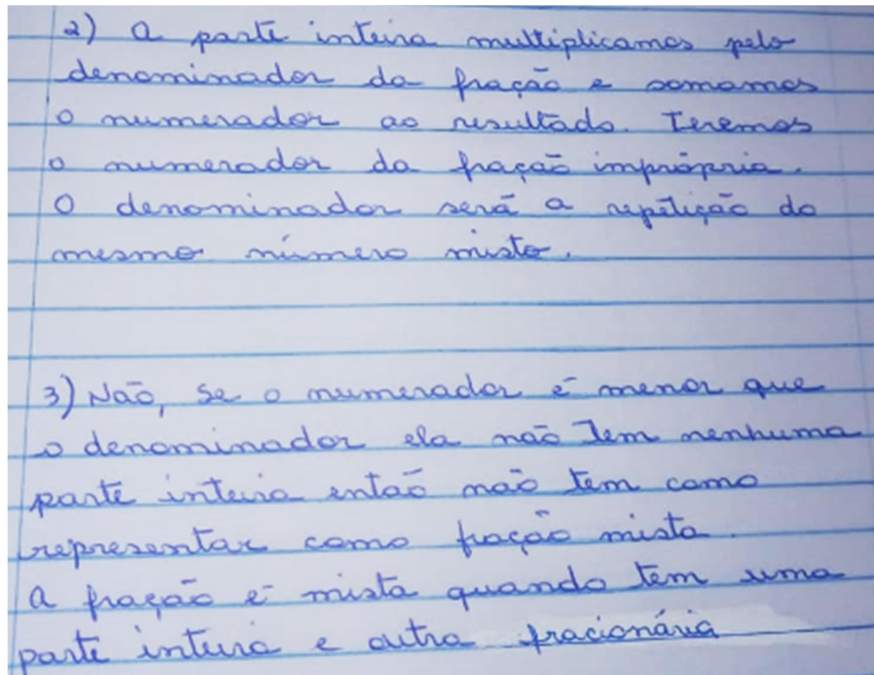 2) A parte inteira multiplicamos pelo
denominador da fração e somamos
o numerador ao resultado. Teremos
o numerador da fração imprópria.
O denominador será a repetição do
mesmo número misto.
3) Não, se o numerador é menor que
o denominador ela não tem nenhuma
parte inteira então não tem como
representar como fração mista.
A fração é mista quando tem uma
parte inteira e outra fracionária